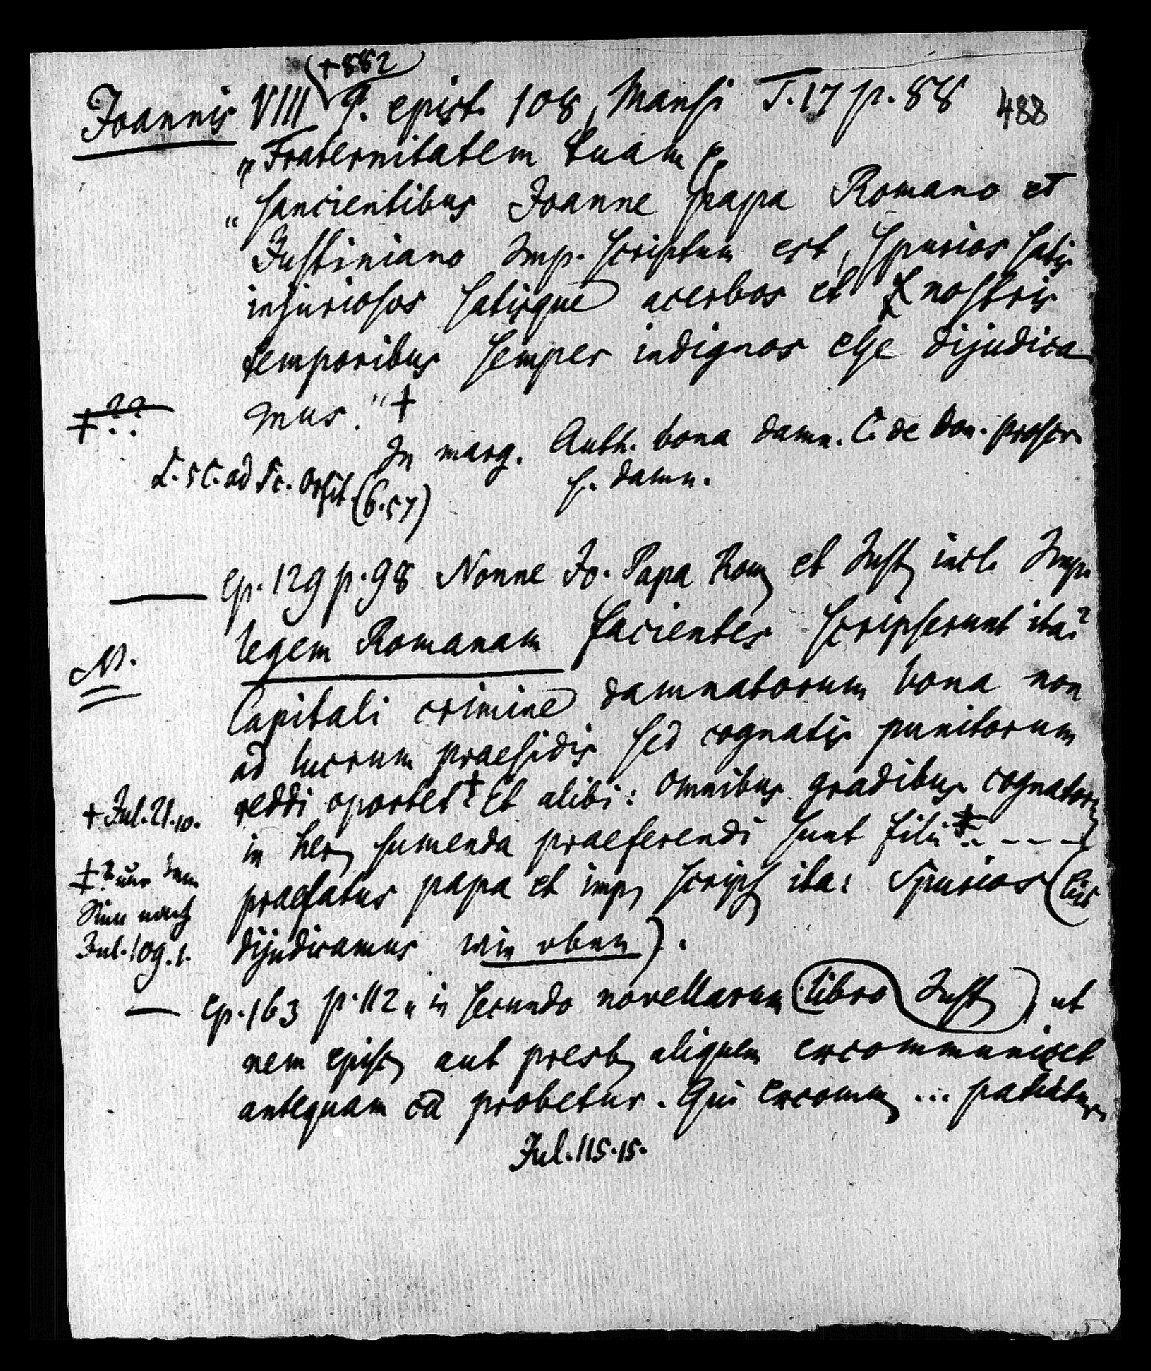 (†882)
Joannis VIII P. epist. 108, Mansi T. 17 p. 88
488
„Fraternitatem tuam“
„sancientibus Joanne papa Romano et
Justiniano Imp. scriptum est, spurios satis
injuriosos satisque acerbos et nostris
temporibus semper indignos esse dijudica
mus.“ †
‡??
In marg. Auth. bona damn. C. de bon. proscr.
s. damn.
L. 5 C. ad Sc. Orfit. (6.57)
— ep. 129 p. 98 Nonne Jo. Papa Rom et Just incl. Imp.
legem Romanam facientes scripserunt ita?
N.
Capitali crimine damnatorum bona non
ad lucrum praesidis sed cognatis punitorum
reddi oportet† Et alibi: omnibus gradibus cognator
† Jul. 21.10.
in her sumenda praeferendi sunt filii ‡. - - -
‡ ? nur dem
Sinn nach
Jul. 109.1.
praefatus papa et imp scrips ita: Spurios (bis
dijudicamus wie oben).
— ep. 163 p. 112 „in secundo novellarum (libro Just) ut
nem episc aut presb aliquem excommunicet
antequam ca probetur. Qui excomm ... patiatur
Jul. 115.15.